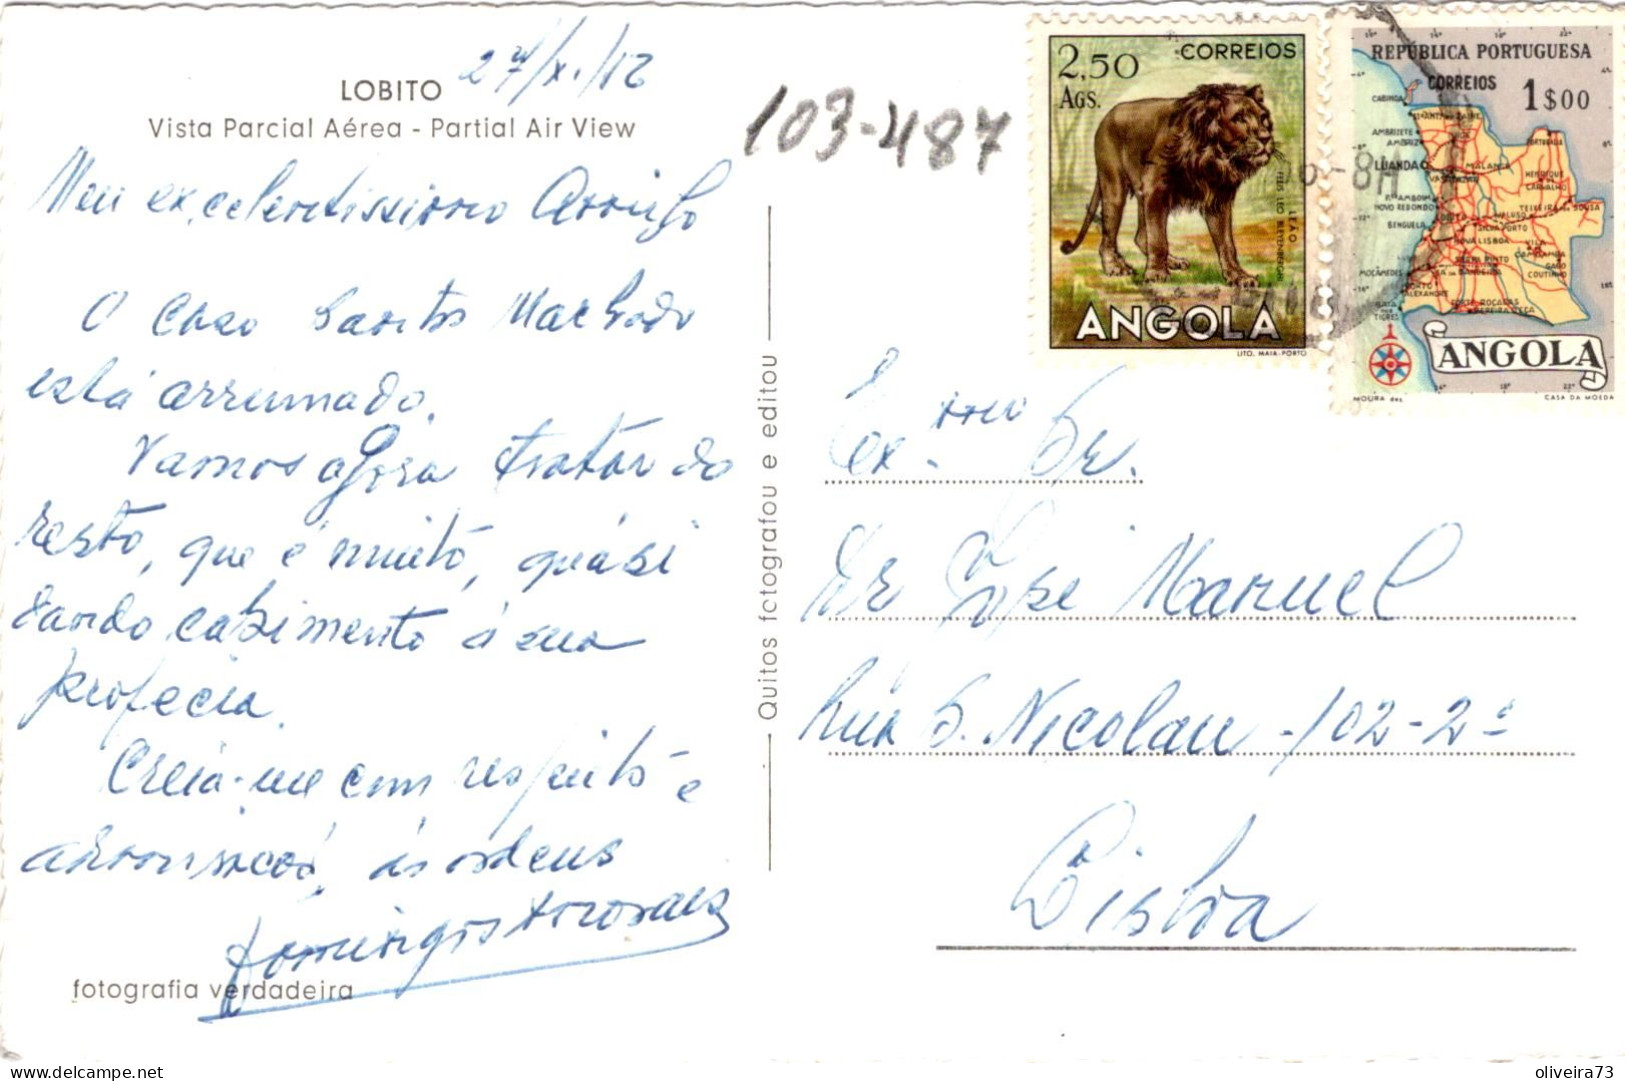 LOBITO
27/X./
Vista Parcial Aérea - Partial Air View
103-487
Meu excelentissimo Amigo
O caso Santos Machado
está arrumado.
Vamos agora tratar do
resto, que é muito, quási
dando cabimento á sua
profecia.
Creia-me com respeito e
às ordens
Domingos
fotografia verdadeira
Quitos fotografou e editou
2,50
CORREIOS
AGS.
LEÃO
FELIS LEO
ANGOLA
LITO. MAIA-PORTO
REPÚBLICA PORTUGUESA
CORREIOS
1$00
CABINDA
AMBRIZETE
AMBRIZ
LUANDA
MALANGE
PORTUGALIA
HENRIQUE
CARVALHO
NOVO REDONDO
TEIXEIRA DE SOUSA
BENGUELA
SILVA PORTO
NOVA LISBOA
MOÇÂMEDES
PORTO
ALEXANDRE
GAGO
COUTINHO
TIGRES
ANGOLA
MOURA des.
CASA DA MOEDA
-8H
Exmo Sr.
Dr José Manuel
Rua S. Nicolau - 102-2º
Lisboa
delcampe.net
oliveira73